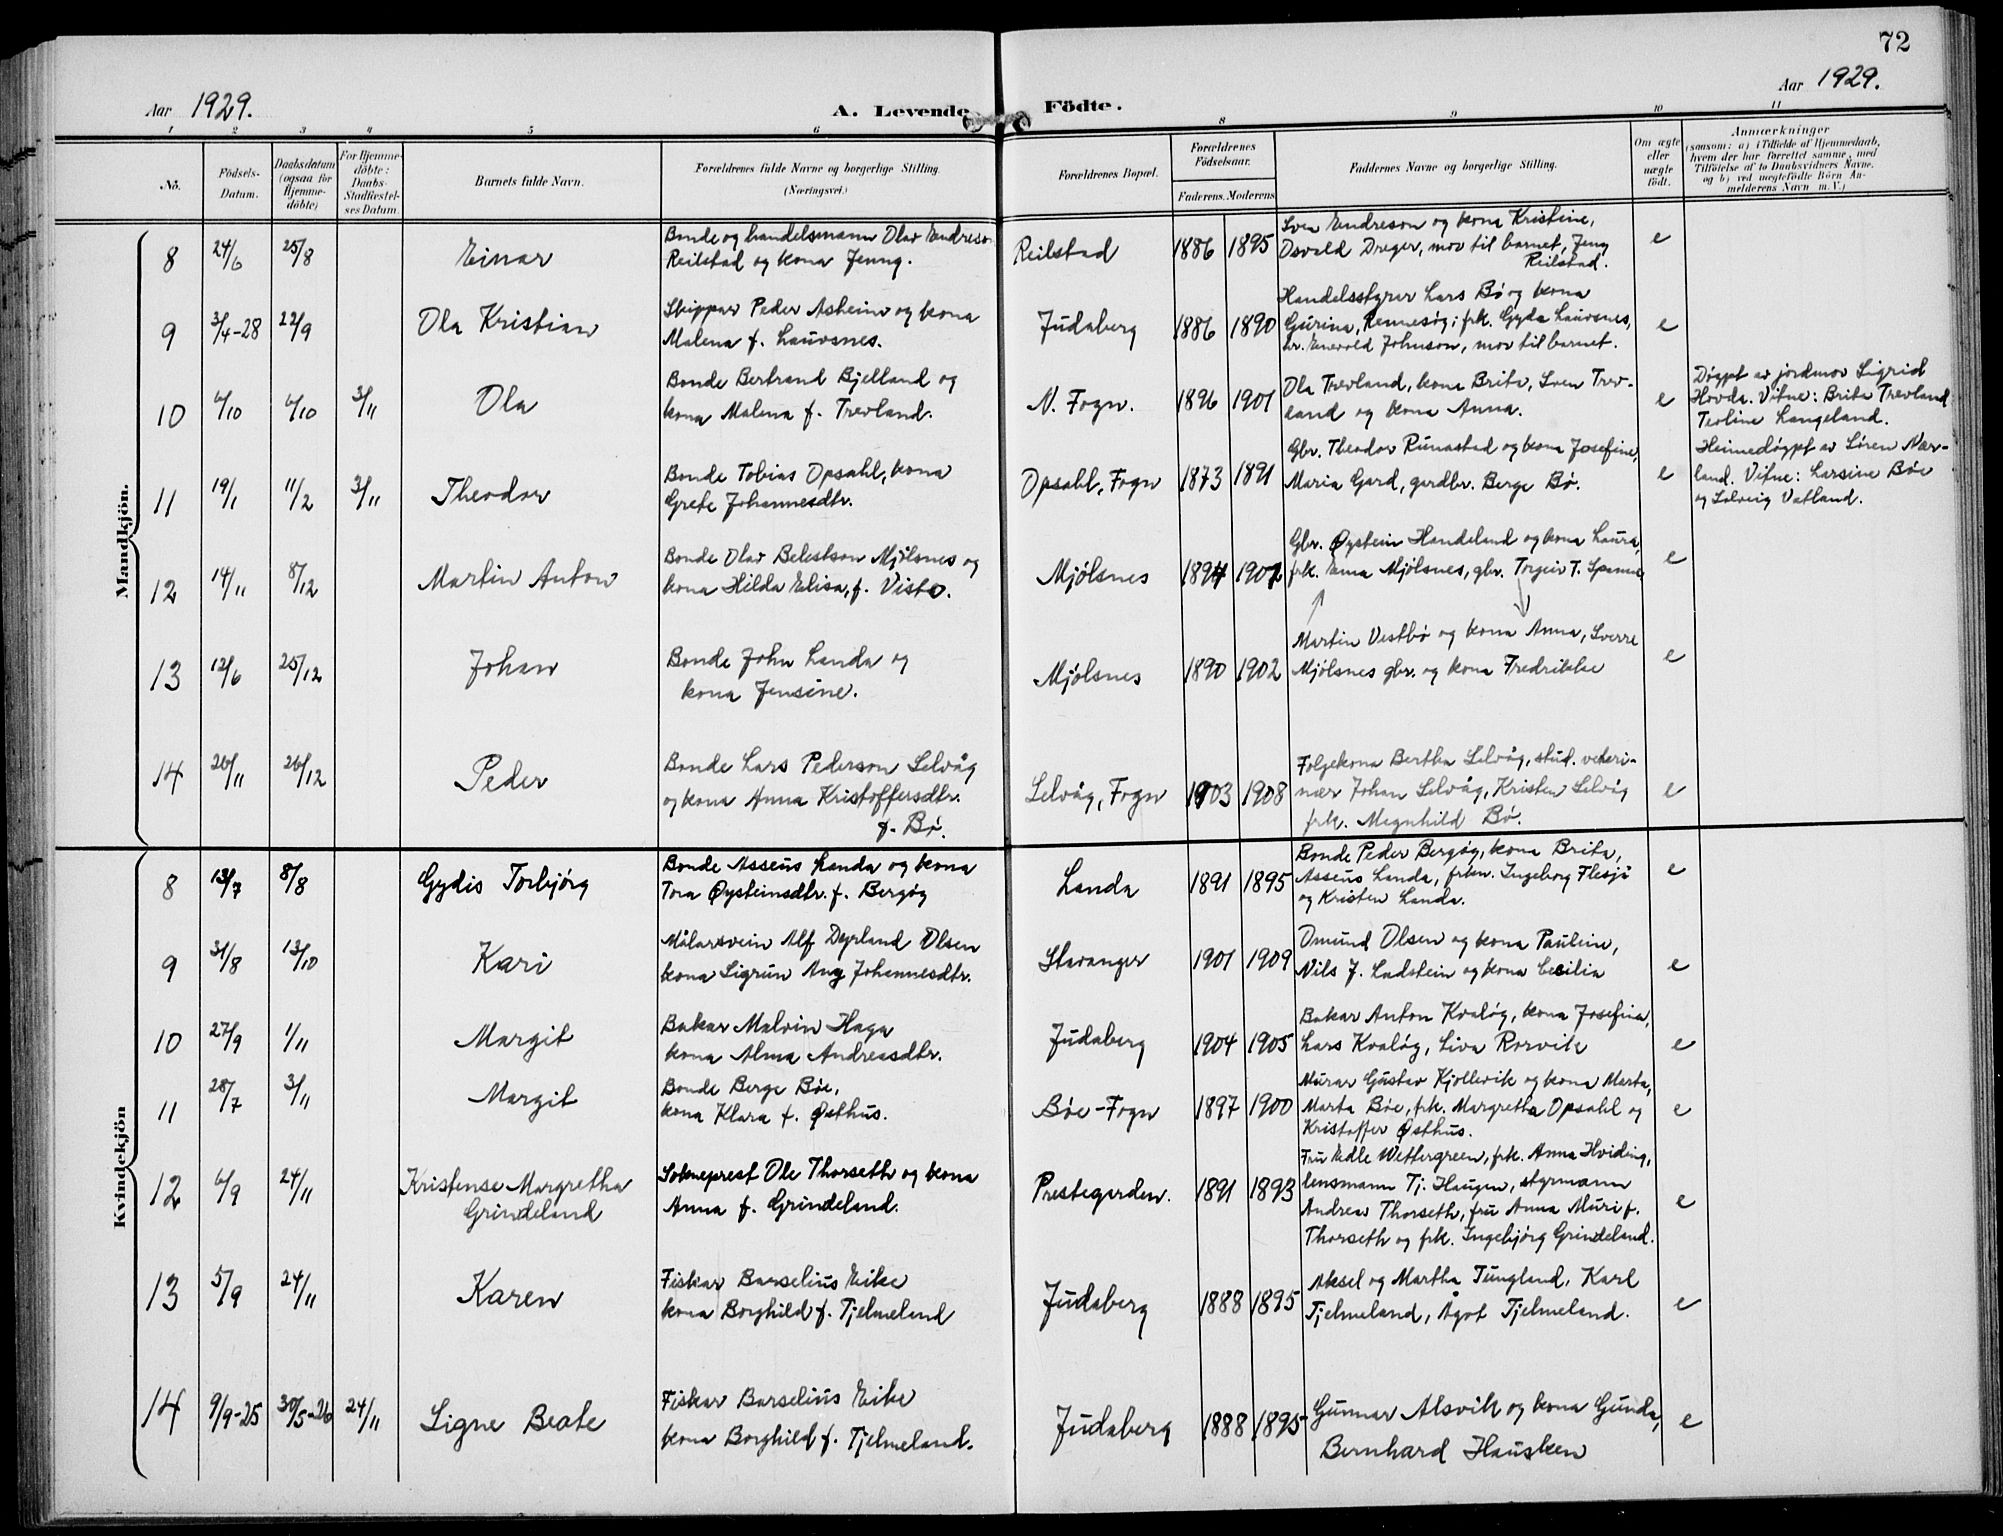 72
Aar 1929.
A. Levende Födte.
Aar 1929.
1 2 3 4 5 6 8 9 10 11
No.
Födsels-
Datum.
Daabsdatum
(ogsaa for
Hjemme-
döbte)
For Hjemme-
döbte:
Daabs-
Stadfæstel-
ses Datum
Barnets fulde Navn.
Forældrenes fulde Navne og borgerlige Stilling.
(Næringsvei.)
Forældrenes Bopæl.
Forældrenes
Födselsaar.
Faderens. Moderens
Faddernes Navne og borgerlige Stilling.
Om ægte
eller
uægte
födt.
Anmærkninger
(saasom: a) i Tilfælde af Hjemmedaab,
hvem der har forrettet samme, med
Tilföielse af to Daabsvidners Navne.
og b) ved uægtefödte Börn An-
melderens Navn m. V.)
Mandkjön.
8 24/6 25/8 Einar
Bonde og handelsmann Olav Endreson
Reilstad og kona Jenny.
Reilstad 1886 1895
Sven Endreson og kona Kristine,
Osvald Dreger, mor til barnet, Jeny
Reilstad.
e
9 3/4-28 22/9 Ola Kristian
Skippar Peder Asheim og kona
Malena f. Lauvsnes.
Judaberg 1886 1890
Handelsstyrer Lars Bø og kona
Gurina, Rennesøy; frk. Gyda Lauvsnes,
hr. Enevold Johnson, mor til barnet.
e
10 6/10 6/10 3/11 Ola
Bonde Bertrand Bjelland og
kona Malena f. Trevland.
N. Fogn. 1896 1901
Ola Trevland, kona Brita, Sven Trev-
land og kona Anna.
e
Døypt av jordmor Sigrid
Hovda. Vitne: Brita Trevland
Teoline Langeland.
11 19/1 11/2 3/11 Theodor
Bonde Tobias Opsahl, kona
Grete Johannesdtr.
Opsahl, Fogn 1873 1891
Gbr. Theodor Runastad og kona Josefine,
Maria Gard, gardbr. Berge Bø.
e
Heimedøypt av Søren Nær-
land. Vitne: Larsine Bøe
og Solveig Vatland.
12 14/11 8/12 Martin Anton
Bonde Olav Belestson Mjølsnes og
kona Hilda Elisa, f. Viste.
Mjølsnes 1894 1902
Gbr. Øystein Handeland og kona Laura,
frk. Ema Mjølsnes, gbr. Torgeir T. Spanne
e
13 12/6 25/12 Johan
Bonde John Landa og
kona Jensine.
Mjølsnes 1890 1902
Martin Vestbø og kona Anna, Sverre
Mjølsnes gbr. og kona Fredrikke
e
14 26/11 26/12 Peder
Bonde Lars Pederson Selvåg
og kona Anna Kristoffersdtr.
f. Bø.
Selvåg, Fogn 1903 1908
Folgekona Bertha Selvåg, stud. veteri-
nær Johan Selvåg, Kristen Selvåg
frk. Magnhild Bø.
e
Kvindekjön
8 13/7 8/8 Gydis Torbjørg
Bonde Asseus Landa og kona
Tora Øysteinsdtr. f. Bergøy
Landa 1891 1895
Bonde Peder Bergøy, kona Brita,
Asseus Landa, frkn. Ingeborg Flesjå
og Kristen Landa.
e
9 31/8 13/10 Kari
Målarsvein Alf Dyrland Olsen
kona Sigrun Any Johannesdtr.
Stavanger 1901 1909
Omund Olsen og kona Pauline,
Nils J. Ladstein og kona Cecilia
e
10 27/9 1/11 Margit
Bakar Malvin Haga
kona Alma Andreasdtr.
Judaberg 1904 1905
Bakar Anton Kvaløy, kona Josefina,
Lars Kvaløy, Liva Rorvik
e
11 28/7 3/11 Margit
Bonde Berge Bøe,
kona Klara f. Østhus.
Bøe-Fogn 1897 1900
Murar Gustav Kjollevik og kona Marta,
Marta Bøe, frk. Margretha Opsahl og
Kristoffer Østhus.
e
12 6/9 24/11 Kristense Margretha
Grindeland
Sokneprest Ole Thorseth og kona
Anna f. Grindeland.
Prestegarden. 1891 1893
Fru Edle Wettergreen, frk. Anna Hviding,
lensmann Tj. Haugen, styrmann
Andreas Thorseth, fru Anna Muri f.
Thorseth og frk. Ingebjørg Grindeland.
e
13 5/9 24/11 Karen
Fiskar Barselius Eike
kona Borghild f. Tjelmeland
Judaberg 1888 1895
Aksel og Martha Tungland, Karl
Tjelmeland, Ågot Tjelmeland.
e
14 9/9-25 30/5-26 24/11 Signe Beate
Fiskar Barselius Eike
kona Borghild f. Tjelmeland.
Judaberg 1888 1895
Gunnar Alsvik og kona Gunda,
Bernhard Hausken
e